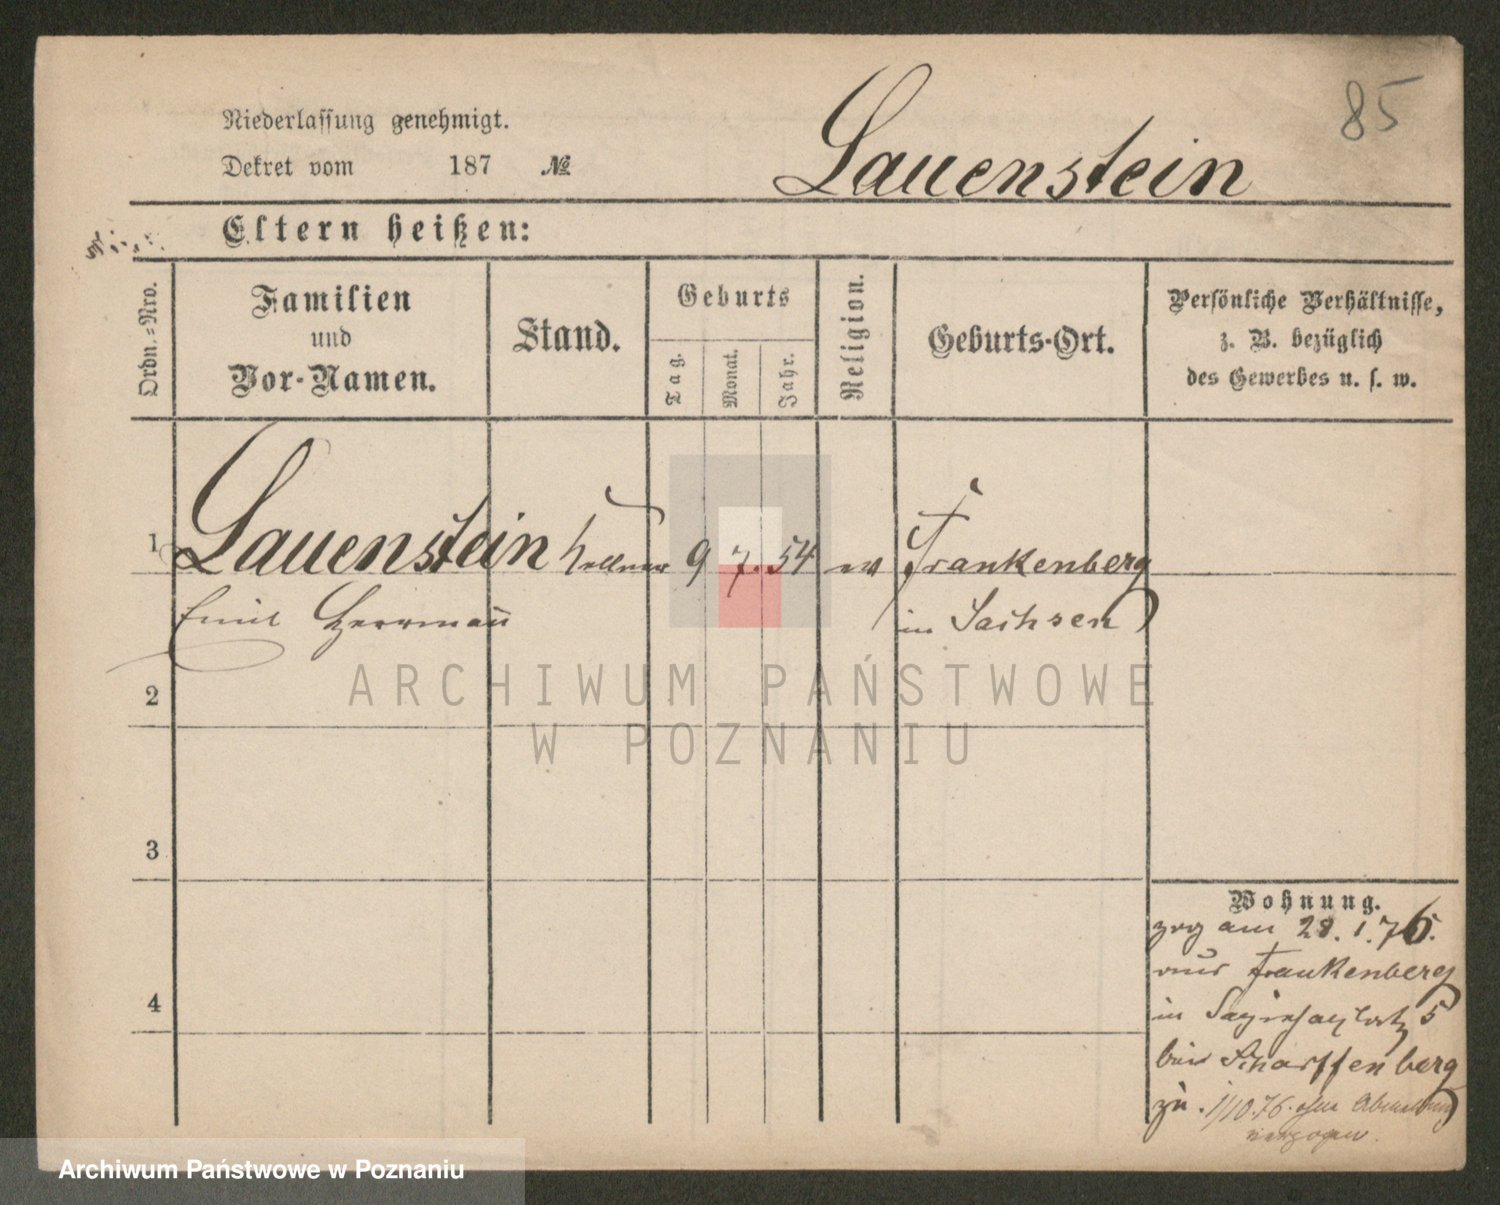 85
Niederlassung genehmigt.
Dekret vom 187 №
Lauenstein
Eltern heißen:
Ordn.-Nro.
Familien
und
Vor-Namen.
Stand.
Geburts
Tag.
Monat.
Jahr.
Religion.
Geburts-Ort.
Persönliche Verhältnisse,
z. B. bezüglich
des Gewerbes u. s. w.
1 Lauenstein Kellner 9 7. 54 ev Frankenberg
Emil Herrmann in Sachsen
2
3
4
Wohnung.
zog am 28. 1. 76.
aus Frankenberg
in 5
bei Scharffenberg
zu. 1/10 76. ohne Abmeldung
verzogen.
ARCHIWUM PAŃSTWOWE
W POZNANIU
Archiwum Państwowe w Poznaniu